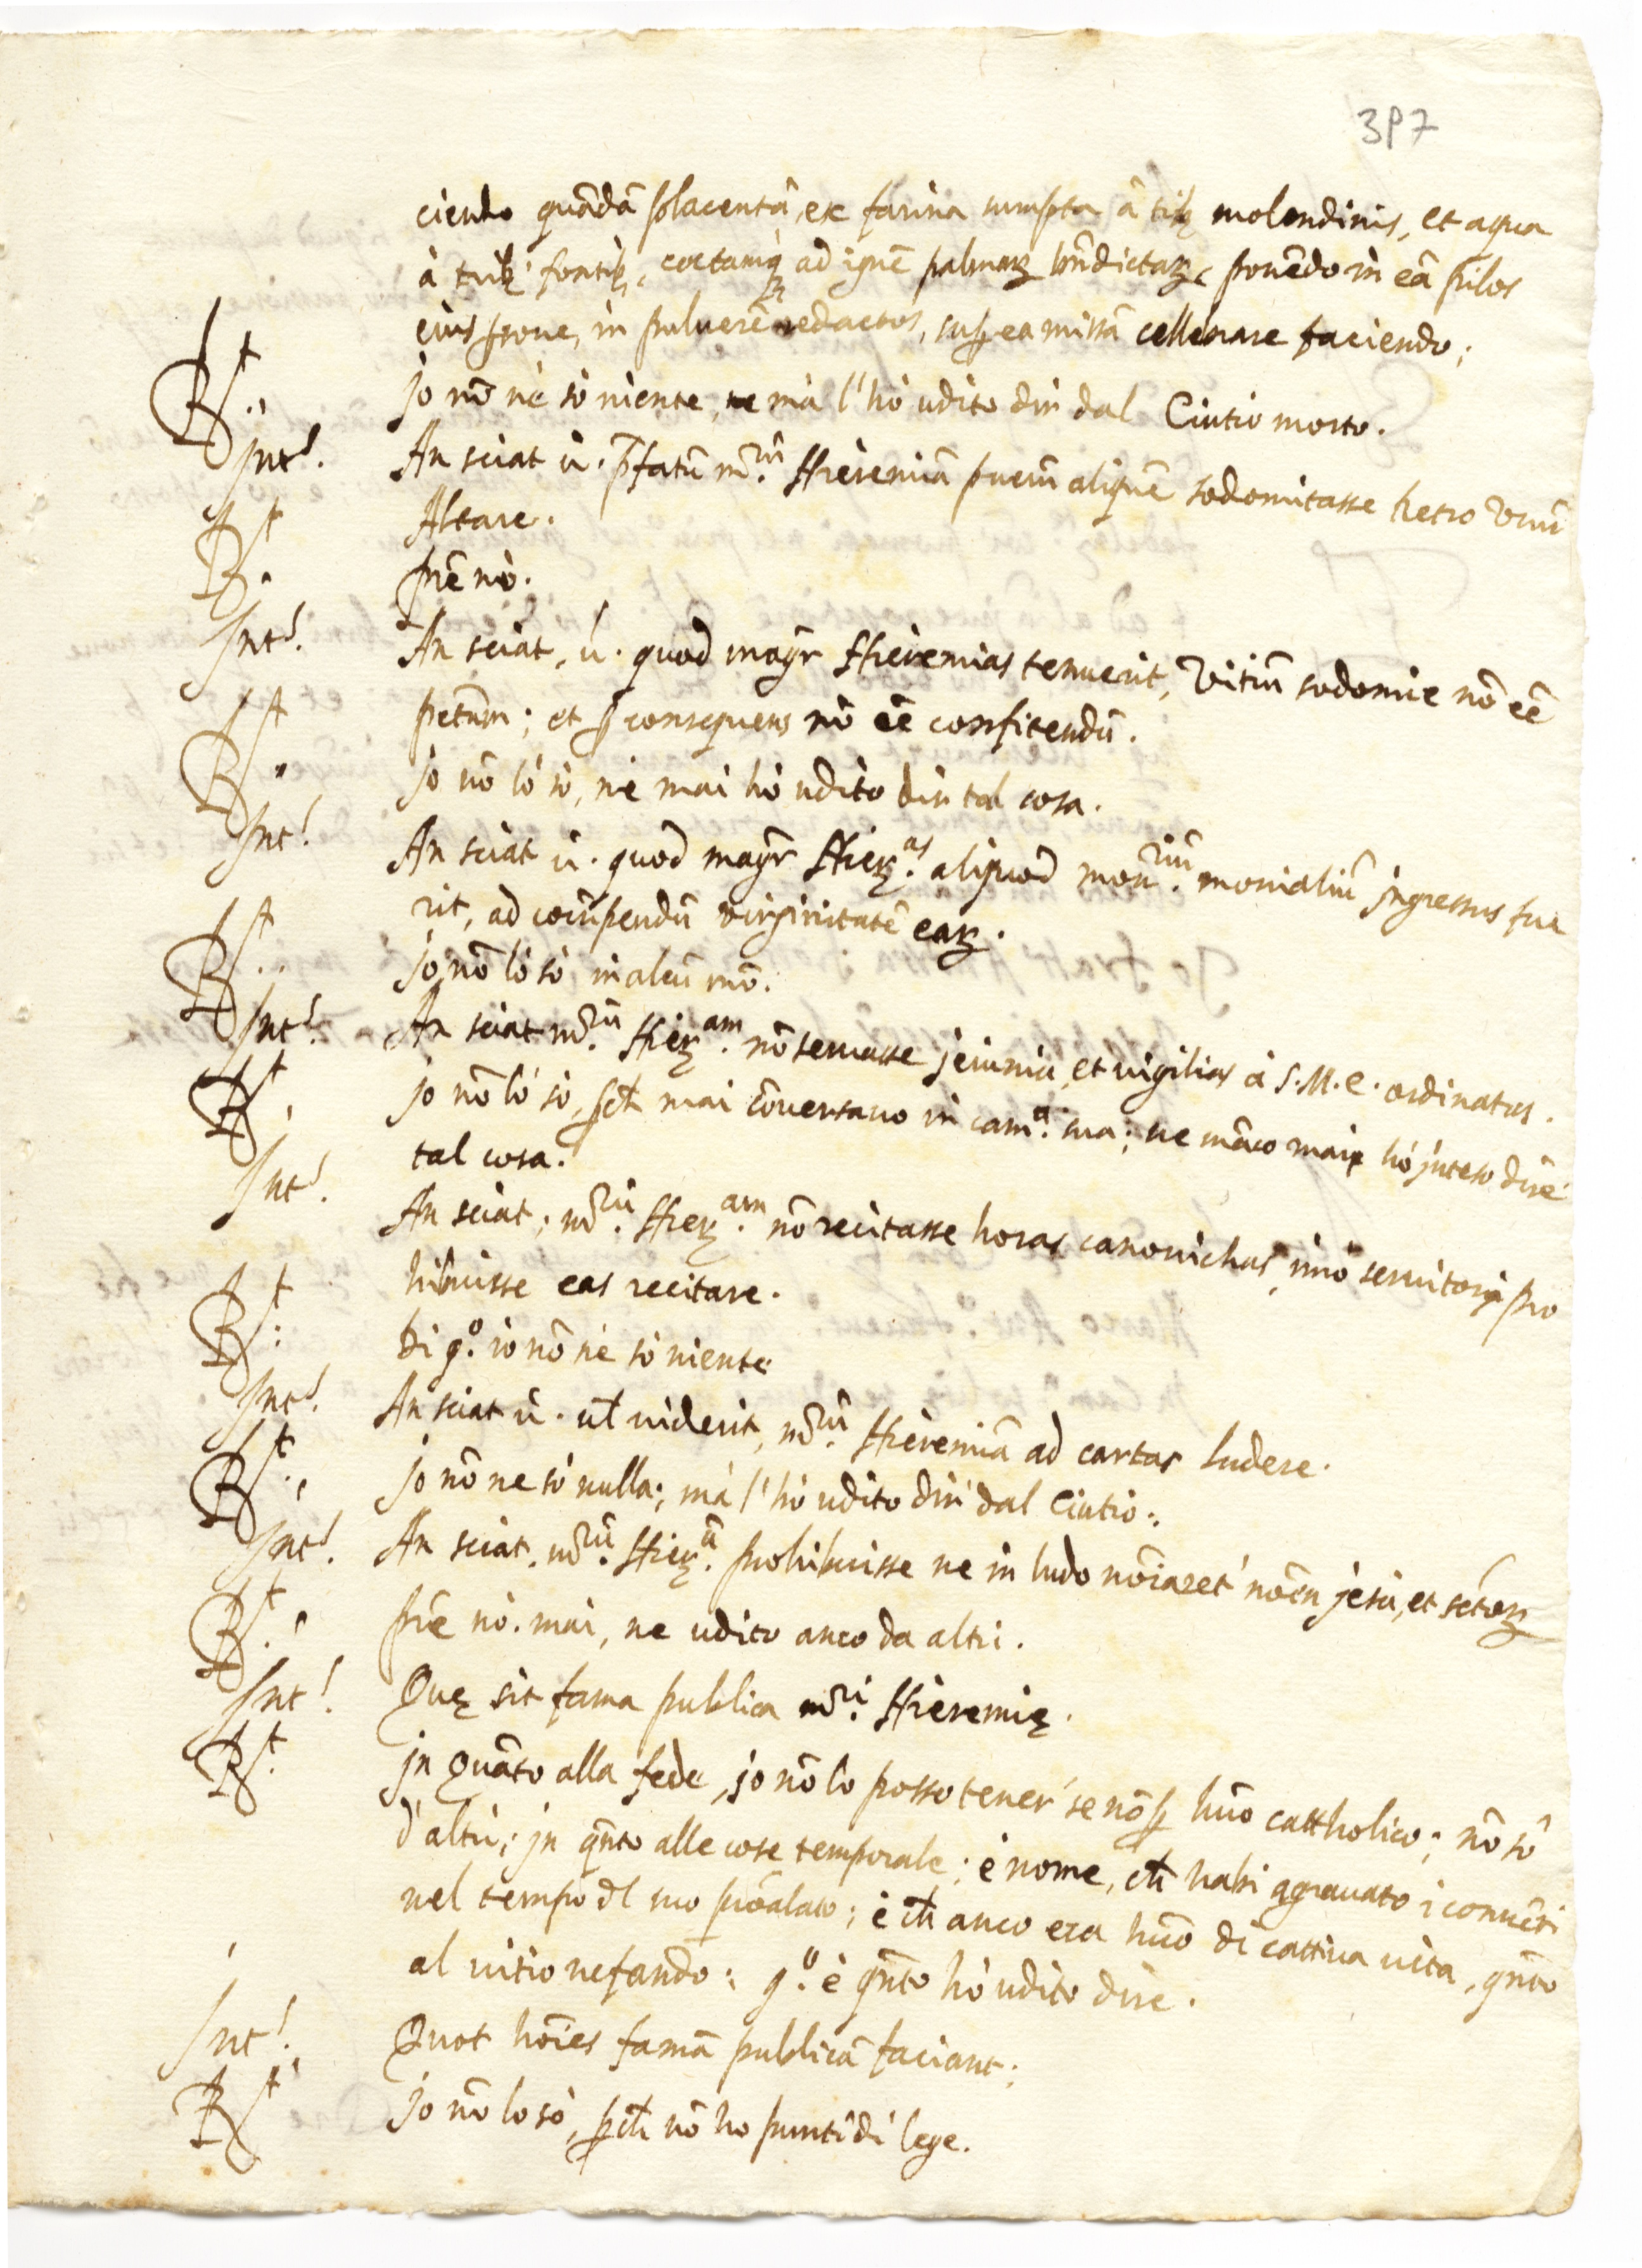 397
ciendo quãdã placentã, ex farina sumpta à trib. molendinis, et aqua
à trib. fontib., coctamq; ad ignẽ palmar. bñdictar., ponẽdo in eã pilos
eius, in puluerẽ redactos, sup ea missã cellebrare faciendo;
Rt. Jo nõ ne sò niente, mà l'hò udito dir dal Ciutio morto.
Int. An sciat ũ. pfatũ mrũ. Hieremiã puerũ aliquẽ sodomitasse retro unũ
Altare.
Rt. prẽ nò.
Int. An sciat, ũ. quod magr Hieremias tenuerit, vitiũ sodomie nõ eẽ
pctũm; et p consequens nõ eẽ confitendũ.
Rt. Jo nõ lò sò, nè mai hò udito dir tal cosa.
Int. An sciat ũ. quod magr Hier.as aliquod mon.riũ monialiũ jngressus fue
rit, ad corũpendũ virginitatẽ ear.
Rt. Jo nõ lò sò in alcũ mõ.
Int. An sciat mrũ. Hier.am nõ seruasse jeiunia, et uigilias à S.M.E. ordinatas.
Rt. Jo nõ lò sò, pch mai cõuersauo in cam.a sua; ne mãco mai hò jnteso dire
tal cosa.
Int. An sciat, mrũ. Hier.am nõ recitasse horas canonichas, imò seruitori pro
hibuisse eas recitare.
Rt. Di q.o io nõ nè sò niente
Int. An sciat ũ. ul uiderit, mrũ. Hieremiã ad cartas ludere.
Rt. Jo nõ ne sò nulla; mà l'hò udito dir dal Ciutio.
Int. An sciat, mrũ. Hier.ã prohibuisse ne in ludo nõiaret' noẽn jesu, et sctor.
Rt. prẽ nò. mai, ne udito anco da altri.
Int. Quę sit fama publica mri. Hieremię.
Rt. jn quãto alla fede, jo nõ lo posso tener' se nõ p huõ cattholico; nõ sò
d'altri; jn qnto alle cose temporale; è nome, ch habi agrauato i conuẽti
nel tempo dl suo ; è ch anco era huõ di cattiua uita, qnto
al uitio nefando; q.o è qnto hò udito dire.
Int. Quot hoies famã publicã faciant;
Rt. Jo nõ lo sò, pch nõ ho punti di lege.